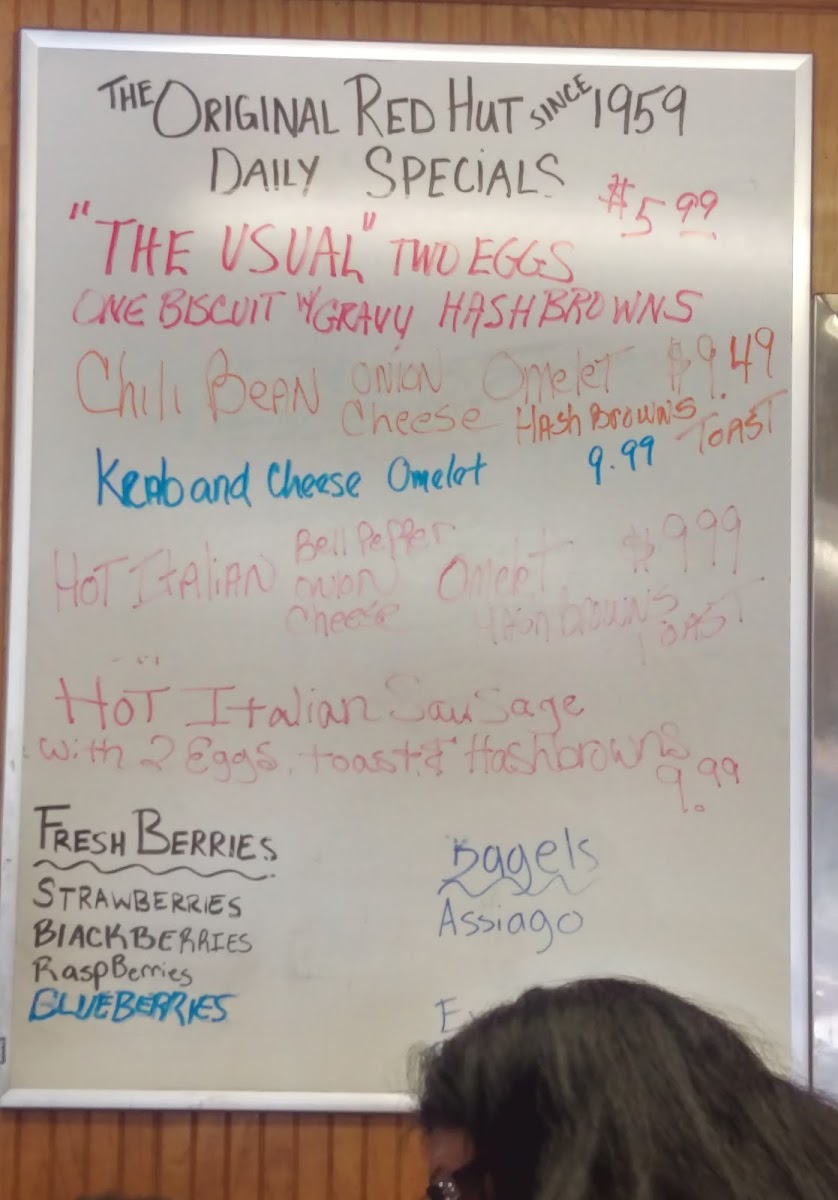 THE ORIGINAL RED HUT SINCE 1959
DAILY SPECIALS
$5 99
"THE USUAL" TWO EGGS
ONE BISCUIT W/GRAVY HASHBROWNS
Chili BEAN ONION Omelet $9.49
Cheese HASH BROWNS TOAST
KRAb and Cheese Omelet 9.99
Bell Pepper
HOT ITALIAN ONION Omelet $999
Cheese Hash browns
TOAST
HOT Italian Sausage
with 2 Eggs, toast & Hashbrowns
9.99
FRESH BERRIES
STRAWBERRIES
BlACKBERRIES
RaspBerries
BLUEBERRIES
Bagels
Assiago